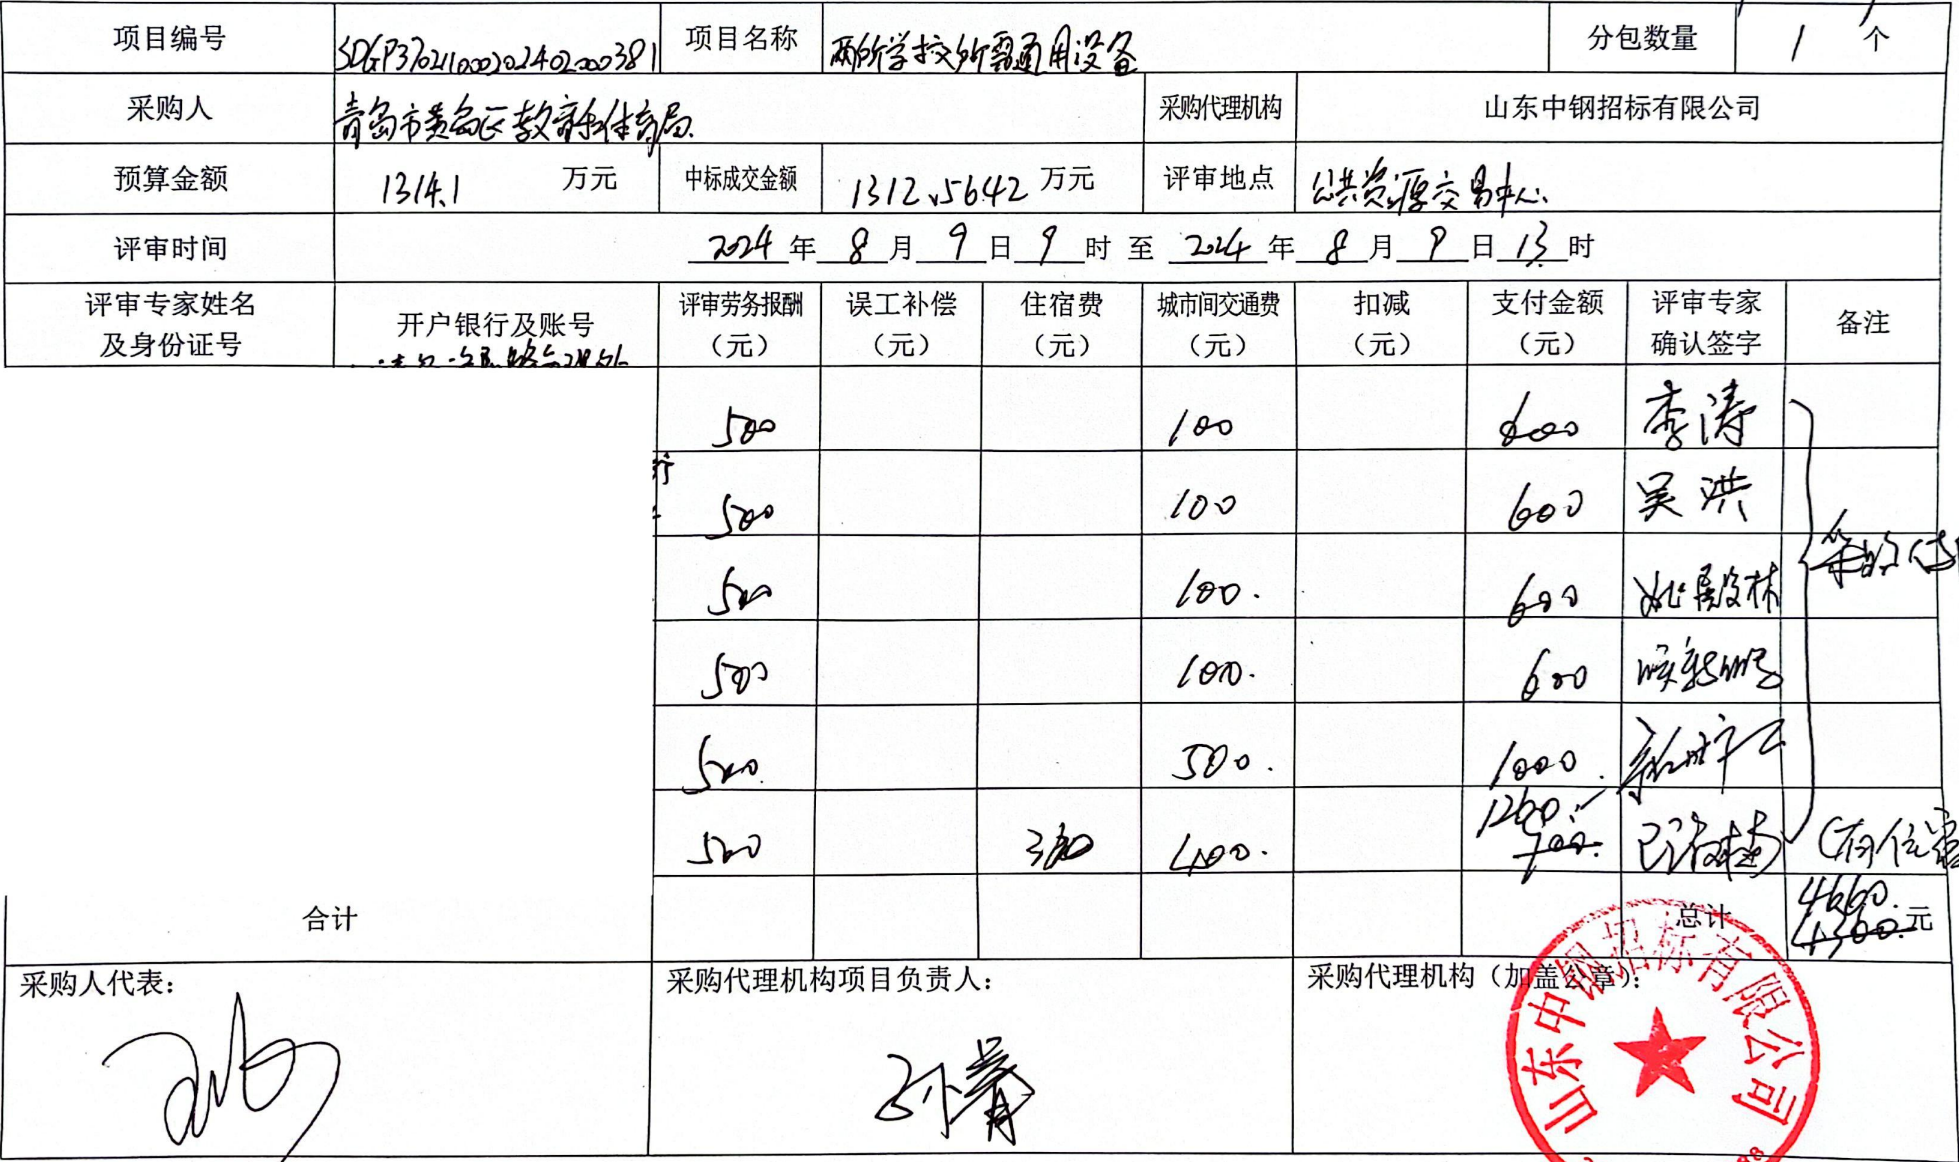 项目编号 SDGP370211000202402000381 项目名称 两所学校所需通用设备 分包数量 1 个
采购人 青岛市黄岛区教育和体育局 采购代理机构 山东中钢招标有限公司
预算金额 1314.1 万元 中标成交金额 1312.5642 万元 评审地点 公共资源交易中心
评审时间 2024 年 8 月 9 日 9 时 至 2024 年 8 月 9 日 13 时
评审专家姓名及身份证号 开户银行及账号 评审劳务报酬（元） 误工补偿（元） 住宿费（元） 城市间交通费（元） 扣减（元） 支付金额（元） 评审专家确认签字 备注
500 100 600 李涛
500 100 600 吴洪
500 100. 600 姚殿林
500 100. 600
500 500. 1000.
500 400. 1260.
合计 总计 4660. 4300. 元
采购人代表： 采购代理机构项目负责人： 采购代理机构（加盖公章）：
孙菁
山东中钢招标有限公司